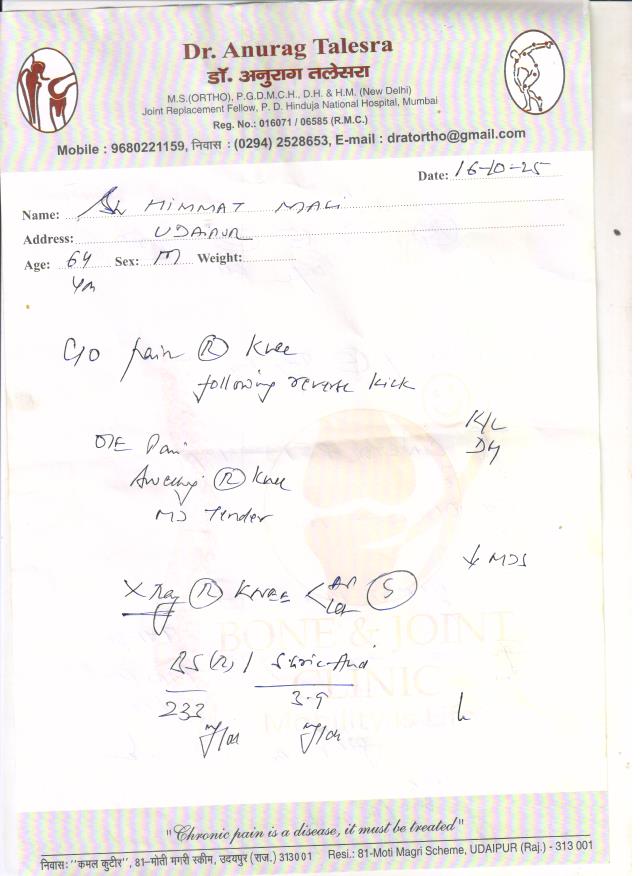 Dr. Anurag Talesra
डॉ. अनुराग तलेसरा
M.S.(ORTHO), P.G.D.M.C.H., D.H. & H.M. (New Delhi)
Joint Replacement Fellow, P. D. Hinduja National Hospital, Mumbai
Reg. No.: 016071 / 06585 (R.M.C.)
Mobile : 9680221159, निवास : (0294) 2528653, E-mail : dratortho@gmail.com
Date: 16-10-25
Name: HIMMAT MALI
Address: UDAIPUR
Age: 64 Sex: M Weight:
C/O pain (R) Knee
following reverse kick
K/C
O/E Pain
(R) Knee
Tender
X Ray (R) Knee < AP (S)
BS(R) / S.Uric Acid
233 3.9
BONE & JOINT
CLINIC
"Chronic pain is a disease, it must be treated"
निवास: "कमल कुटीर", 81-मोती मगरी स्कीम, उदयपुर (राज.) 313001 Resi.: 81-Moti Magri Scheme, UDAIPUR (Raj.) - 313 001